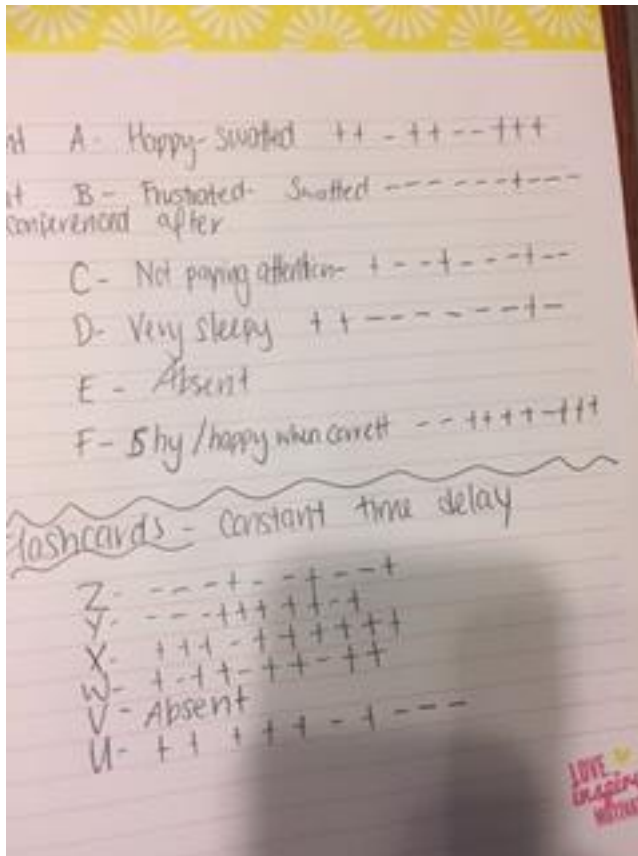 A- Happy- swatted ++-++--+++
B- Frustrated- Swatted ------+---
conferenced after
C- Not paying attention- +--+---+--
D- Very sleepy ++------+-
E- Absent
F- Shy/happy when corrett --++++-+++
Flashcards- Constant time delay
Z- ---+--+--+
Y- ---+++++-+
X- +++-++++++
W- +-++-++-++
V- Absent
U- +++++-+---
LOVE
inspire